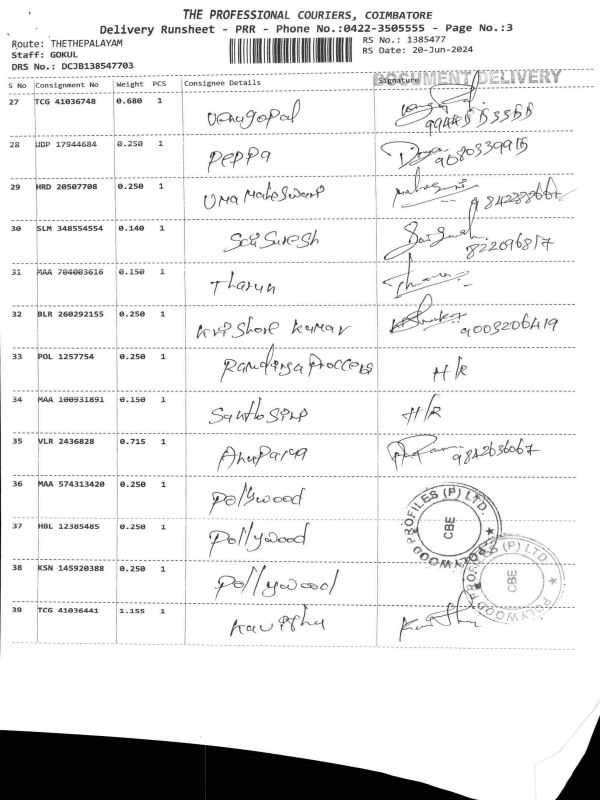 THE PROFESSIONAL COURIERS, COIMBATORE
Delivery Runsheet - PRR - Phone No.:0422-3505555 - Page No.:3
Route: THETHEPALAYAM RS No.: 1385477
Staff: GOKUL RS Date: 20-Jun-2024
DRS No.: DCJB138547703
DOCUMENT DELIVERY
S No Consignment No Weight PCS Consignee Details Signature
27 TCG 41036748 0.680 1 Venugopal
28 UDP 17944684 0.250 1 Peppa 9080339915
29 HRD 20507708 0.250 1 Uma Maheswari
30 SLM 348554554 0.140 1 Sai Suresh
31 MAA 704003616 0.150 1 Tharun
32 BLR 260292155 0.250 1 Krishore Kumar 9003206419
33 POL 1257754 0.250 1 H/R
34 MAA 100931891 0.150 1 H/R
35 VLR 2436828 0.715 1 9842636067
36 MAA 574313420 0.250 1 Pollywood
37 HBL 12385485 0.250 1 Pollywood
POLYWOOD PROFILES (P) LTD. CBE
38 KSN 145920388 0.250 1 Pollywood
POLYWOOD PROFILES (P) LTD. CBE
39 TCG 41036441 1.155 1 Kavitha